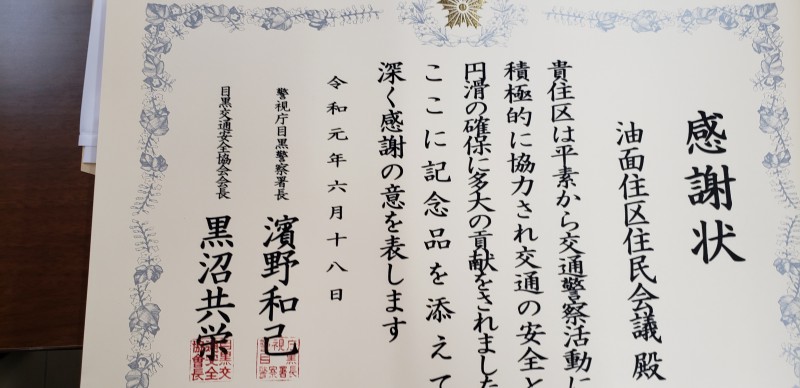 感謝状
油面住区住民会議 殿
貴住区は平素から交通警察活動に
積極的に協力され交通の安全と
円滑の確保に多大の貢献をされました
ここに記念品を添えて
深く感謝の意を表します
令和元年六月十八日
警視庁目黒警察署長
濱野和己
目黒交通安全協会会長
黒沼共栄